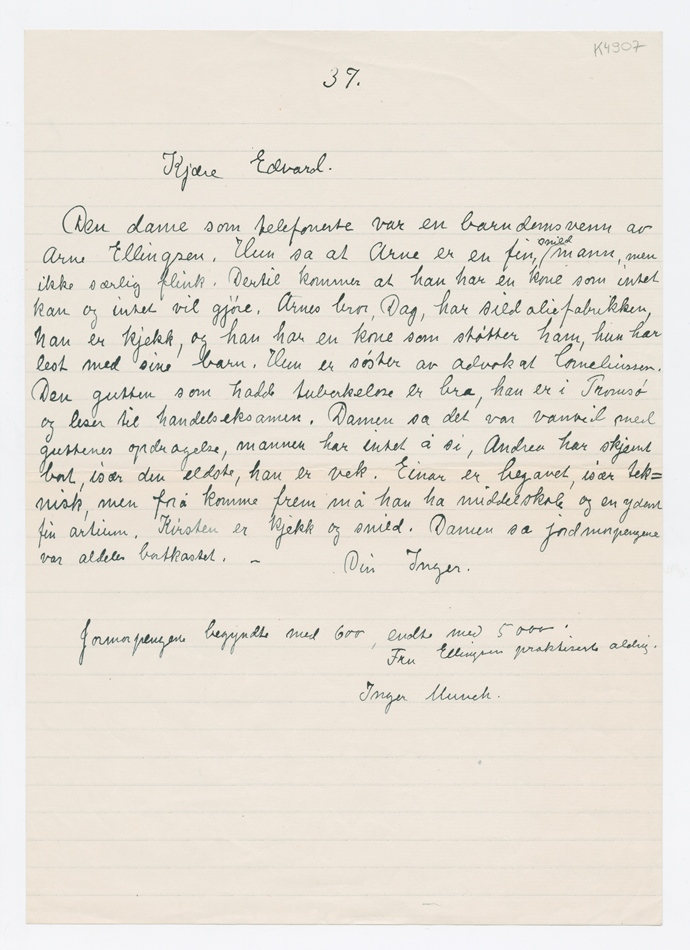 K4907
37.
Kjære Edvard.
Den dame som telefonerte var en barndomsvenn av
Arne Ellingsen. Hun sa at Arne er en fin, snild mann, men
ikke særlig flink. Dertil kommer at han har en kone som intet
kan og intet vil gjøre. Arnes bror, Dag, har sildoliefabrikken,
han er kjekk, og han har en kone som støtter ham, hun har
lest med sine barn. Hun er søster av advokat Corneliussen.
Den gutten som hadde tuberkelose er bra, han er i Tromsø
og leser til handelseksamen. Damen sa det var vanvid med
guttenes opdragelse, mannen har intet å si, Andrea har skjemt
bort, især den eldste, han er vek. Einar er begavet, især tek=
nisk, men for å komme frem må han ha middelskole og en yderst
fin artium. Kirsten er kjekk og snild. Damen sa jordmorpengene
var aldeles bortkastet. –
Din Inger.
Jormorpengene begyndte med 600, endte med 5000.
Fru Ellingsen praktiserte aldrig.
Inger Munch.